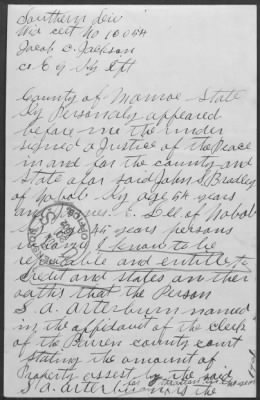 Southern Div
Wid cert No 16054
Jacob C. Jackson
Co E 9 Ky Ift
County of Monroe State
Ky Personally appeared
before me the under
signed a Justice of the Peace
in and for the county and
State afor said John S. Bradley
of Nobob Ky age 54 years
and E. Dell of Nobob
45 years persons
I know to be
reputable and entitled to
credit and states on ther
oaths that the Person
S. A. Arterburn named
in the affidavit of the clerk
of the Barren county court
stating the amount of
Property assest by the said
S. A. Arterburn is the